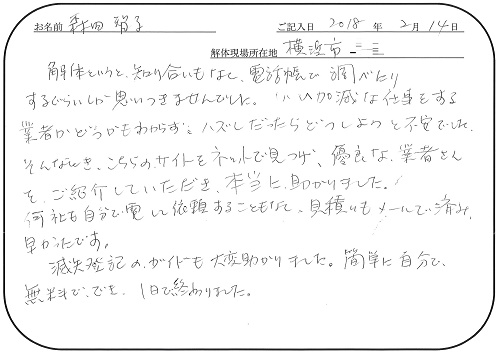 お名前 森田 ご記入日 2018 年 2 月 14 日
解体現場所在地 横浜市
解体というと、知り合いもなし、電話帳で調べたり
するぐらいしか思いつきませんでした。いい加減な仕事をする
業者かどうかもわからず、ハズレだったらどうしようと不安でした。
そんなとき、こちらのサイトをネットで見つけ、優良な業者さん
を、ご紹介していただき、本当に助かりました。
何社も自分で電して依頼することもなし、見積りもメールで済み、
早かったです。
滅失登記の、ガイドも大変助かりました。簡単に自分で、
無料で、でき、1日で終わりました。